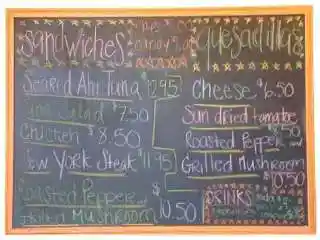 Sandwiches
Seared Ahi Tuna $12.95
Tuna Salad $7.50
Chicken $8.50
New York Steak $11.95
Roasted Pepper and
Grilled Mushroom $10.50
quesadilla
Cheese $6.50
Sun dried tomatoe
$8.50
Roasted Pepper and
Grilled Mushroom
$10.50
DRINKS